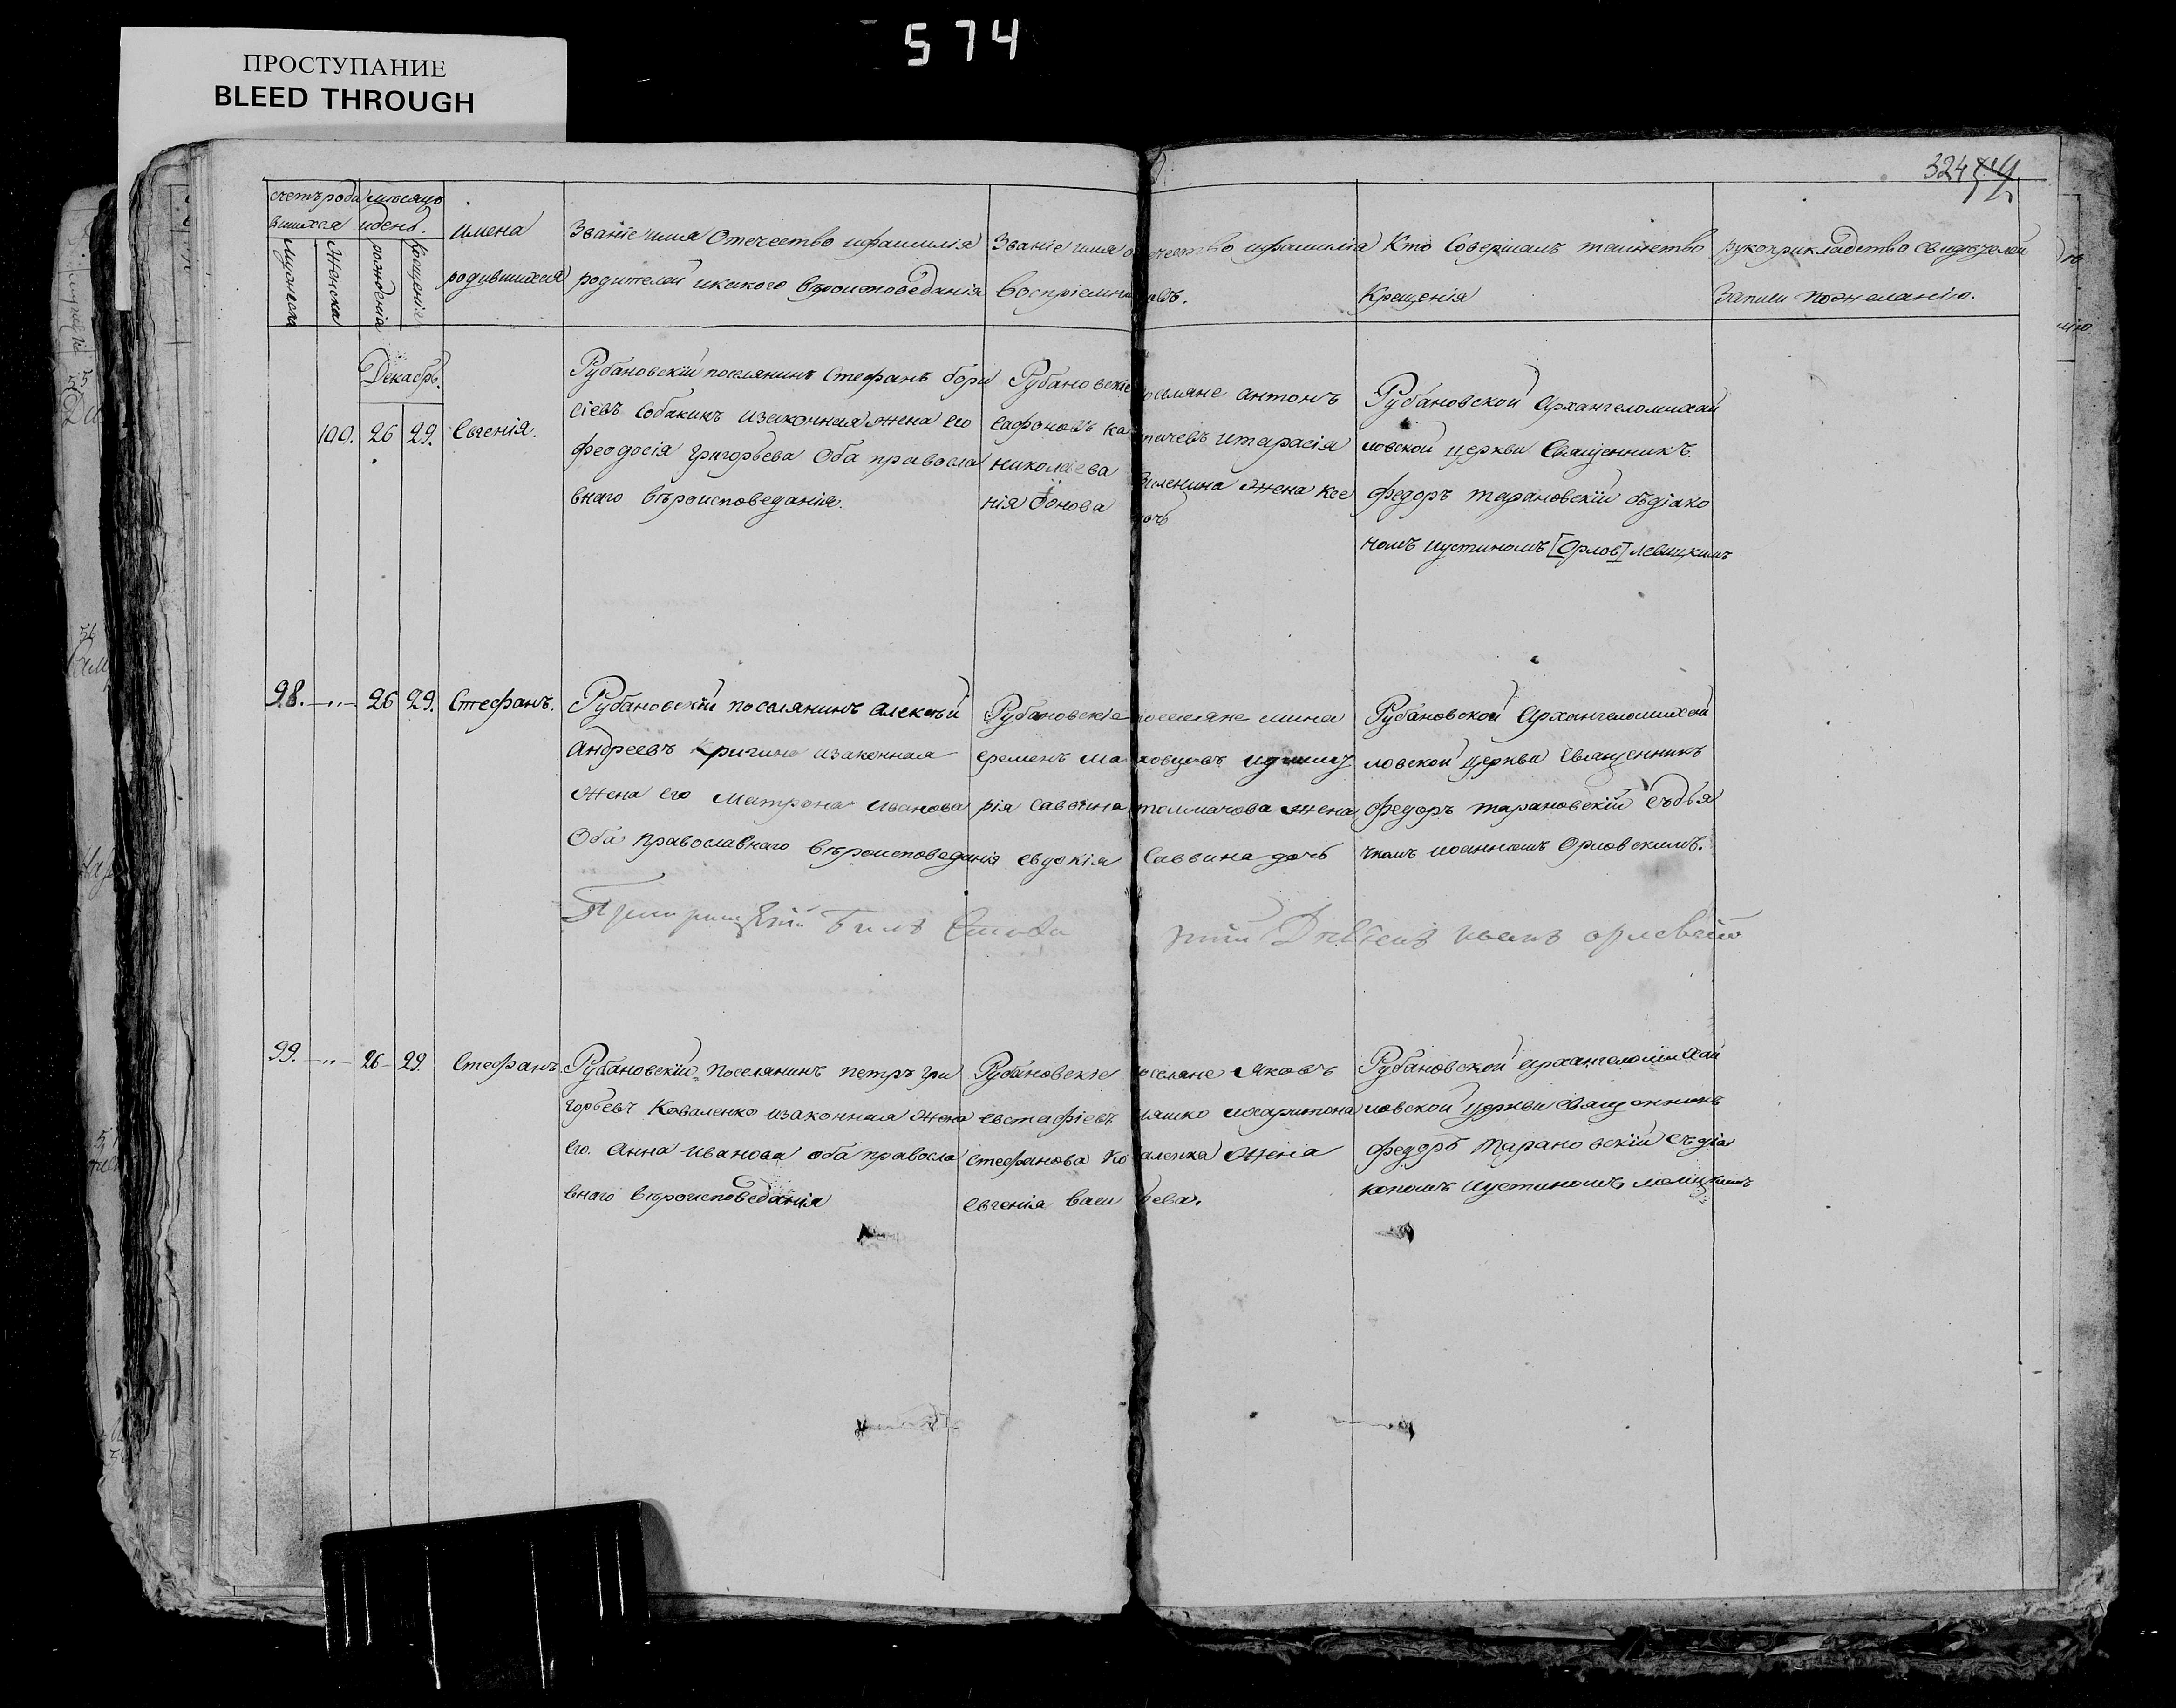 574
ПРОСТУПАНИЕ
BLEED THROUGH
324
счетъ роди
вшихся
мѣсяцъ
и день.
Мужеска
Женска
рожденія
крещенія
имена
родившихся
Званіе имя Отечество и фамилія
родителей и какого вѣроисповеданія
Званіе имя отечество и фамилія
воспріемниковъ.
Кто Совершалъ таинство
Крещенія
рукоприкладство свидѣтелей
записи по желанію.
Декабрь.
100. 26 29. Евгенія.
Рубановскій поселянинъ Стефанъ бори
сіевъ Собакинъ и законная жена его
Феодосія Григорьева Оба правосла
внаго вѣроисповеданія.
Рубановскіе поселяне антонъ
сафоновъ и тарасія
николаева жена ксе
нія дочь
Рубановской Архангеломихай
ловской церкви Священникъ
Федоръ тарановскій съ діако
номъ иустиномъ [Орлов] левицкимъ
98. -"- 26 29. Стефанъ.
Рубановскій поселянинъ алексѣй
Андреевъ Кригинъ и законная
жена его Матрона Иванова
Оба православнаго вѣроисповеданія
Рубановскіе поселяне мина
еремѣевъ
рія саввина толмачова жена
евдокія Саввина дочь
Рубановской Архангеломихай
ловской церкви Священникъ
Федоръ тарановскій съ дья
чкомъ иоанномъ Орловскимъ.
99. -"- 26 - 29. Стефанъ
Рубановскій поселянинъ петръ гри
горьевъ Коваленко и законная жена
его Анна Иванова оба правосла
внаго вѣроисповеданія
Рубановскіе поселяне Яковъ
евстафіевъ ляшко и харитона
стефанова Коваленка жена
евгенія васильева.
Рубановской архангеломихай
ловской церкви Священникъ
Федоръ Тарановскій съ діа
кономъ иустиномъ